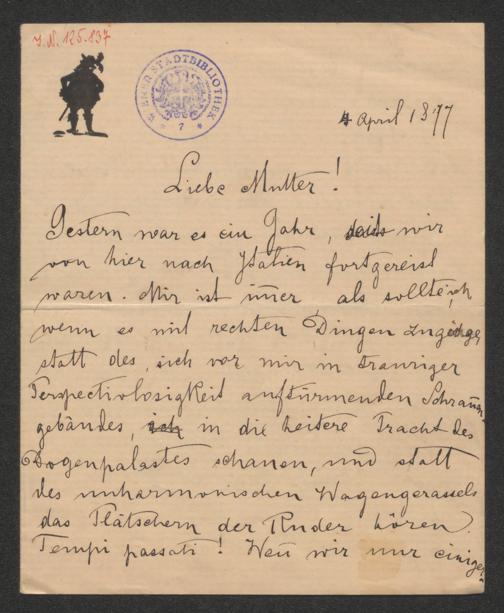 J.N. 125.837
WIENER STADTBIBLIOTHEK
7
4 April 1877
Liebe Mutter!
Gestern war es ein Jahr, daß wir
von hier nach Italien fortgereist
waren. Mir ist im̄er als sollte ich
wenn es mit rechten Dingen zuginge,
statt des, sich vor mir in trauriger
Perspectivlosigkeit auftürmenden Schrann-
gebäudes, ich in die heitere Pracht des
Dogenpalastes schauen, und statt
des unharmonischen Wagengerassels
das Plätschern der Ruder hören.
Tempi passati! Wen̄ wir nur einiger-